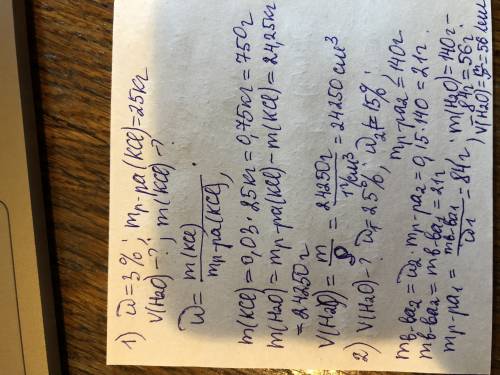 1) ω = 3%; mр-ра(KCl) = 25кг
V(H2O) - ?; m(KCl) - ?
ω = m(KCl) / mр-ра(KCl);
m(KCl) = 0,03 · 25кг = 0,75кг = 750г
m(H2O) = mр-ра(KCl) - m(KCl) = 24,25кг
= 24250г
V(H2O) = m/ρ = 24250г / 1г/см³ = 24250 см³
2) V(H2O) - ? ω1 = 25%; ω2 = 15%;
mр-ра2 = 140г
mв-ва2 = ω2 · mр-ра2 = 0,15 · 140 = 21г.
mв-ва2 = mв-ва1 = 21г
mр-ра1 = mв-ва1 / ω1 = 84г; m(H2O) = 140г -
- 84г = 56г;
V(H2O) = = 56 мл